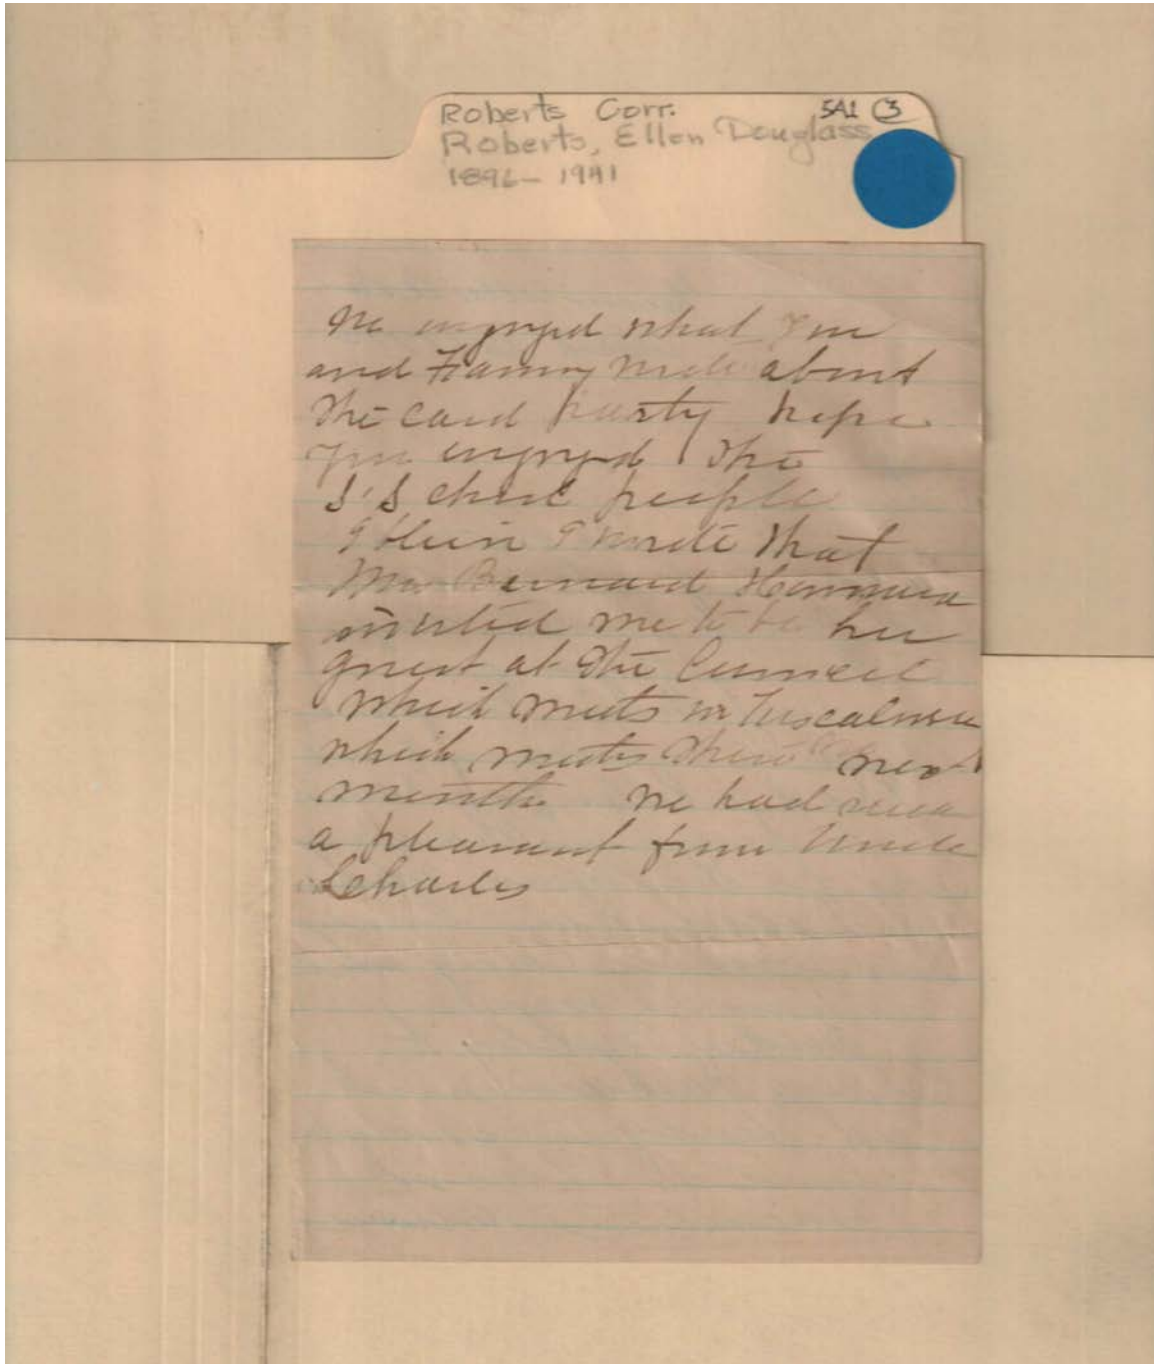 Roberts Corr. 5A1 (3
Roberts, Ellen Douglass
1896-1941
We enjoyed what you
and Fanny wrote about
the card party hope
you enjoyed the
S. S people
I wrote that
Bernard
invited me to be her
guest at the Council
which meets in Tuscaloosa
which meets there next
month we had
a pleasant from Uncle
Charles